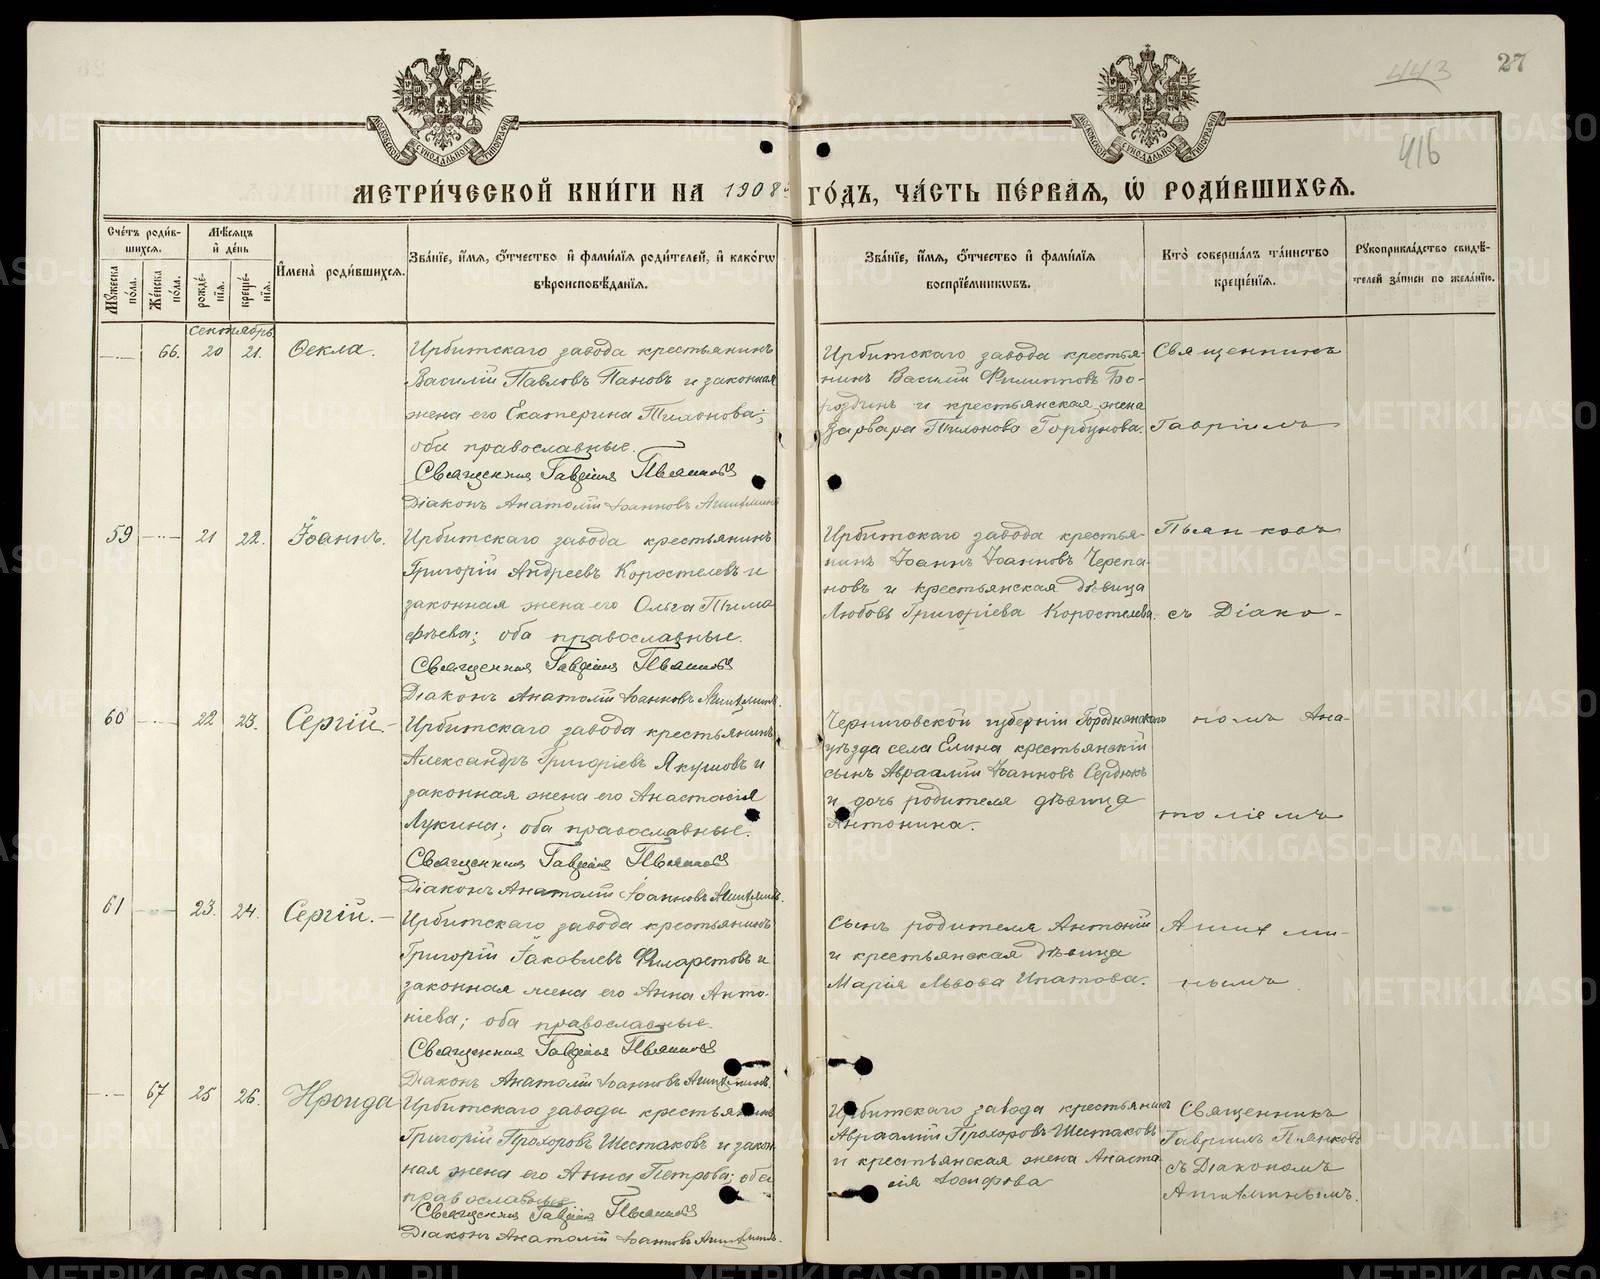 443
27
416
МОСКОВСКОЙ СѴНОДАЛЬНОЙ ТИПОГРАФІИ
МОСКОВСКОЙ СѴНОДАЛЬНОЙ ТИПОГРАФІИ
МЕТРИ́ЧЕСКОЙ КНИ́ГИ НА 1908 й ГО́ДЪ, ЧА́СТЬ ПЕ́РВАѦ, Ѡ РОДИ́ВШИХСѦ.
Сче́тъ роди́в-
шихсѧ.
Мꙋжеска по́ла.
Же́нска по́ла.
Мѣ́сѧцъ
и де́нь
рожде́-
нїѧ.
креще́-
нїѧ.
И҆мена̀ роди́вшихсѧ.
Зва́нїе, и҆́мѧ, ѻ҆́тчество и҆ фами́лїѧ роди́телей, и҆ како́гѡ
вѣроисповѣ́данїѧ.
Зва́нїе, и҆́мѧ, ѻ҆́тчество и҆ фами́лїѧ
воспрїе́мникѡвъ.
Кто̀ соверша́лъ та́инство
креще́нїѧ.
Рꙋкоприкла́дство свидѣ́-
телей за́писи по жела́нїю.
сентябрь
66. 20 21. Ѳекла.
Ирбитскаго завода крестьянинъ
Василій Павловъ Пановъ и законная
жена его Екатерина Тихонова;
оба православные.
Священникъ Гавріилъ Пьянковъ
Діаконъ Анатолій Іоанновъ
Ирбитскаго завода крестья-
нинъ Василій Филипповъ Бо-
роздинъ и крестьянская жена
Варвара Тихонова Горбунова.
Священникъ
Гавріилъ
59 21 22. Іоаннъ.
Ирбитскаго завода крестьянинъ
Григорій Андреевъ Коростелевъ и
законная жена его Ольга Тимо-
фѣева; оба православные.
Священникъ Гавріилъ Пьянковъ
Діаконъ Анатолій Іоанновъ
Ирбитскаго завода крестья-
нинъ Іоаннъ Іоанновъ Черепа-
новъ и крестьянская дѣвица
Любовь Григоріева Коростелева.
Пьянковъ
съ Діако-
60 22 23. Сергій.
Ирбитскаго завода крестьянинъ
Александръ Григоріевъ Якушовъ и
законная жена его Анастасія
Лукина; оба православные.
Священникъ Гавріилъ Пьянковъ
Діаконъ Анатолій Іоанновъ
Черниговской губерніи Городнянскаго
уѣзда села Елина крестьянскій
сынъ Авраамій Іоанновъ Сердюкъ
и дочь родителя дѣвица
Антонина.
номъ Ана-
толіемъ
61 23. 24. Сергій.
Ирбитскаго завода крестьянинъ
Григорій Іаковлевъ Филаретовъ и
законная жена его Анна Анто-
ніева; оба православные.
Священникъ Гавріилъ Пьянковъ
Діаконъ Анатолій Іоанновъ
Сынъ родителя Антоній
и крестьянская дѣвица
Марія Львова Ипатова.
67 25 26. Ираида
Ирбитскаго завода крестьянинъ
Григорій Прохоровъ Шестаковъ и закон-
ная жена его Анна Петрова; оба
православные
Священникъ Гавріилъ Пьянковъ
Діаконъ Анатолій Іоанновъ
Ирбитскаго завода крестьянинъ
Авраамій Прохоровъ Шестаковъ
и крестьянская жена Анаста-
сія Іосифова
Священникъ
Гавріилъ Пьянковъ
съ Діакономъ
METRIKI.GASO-URAL.RU